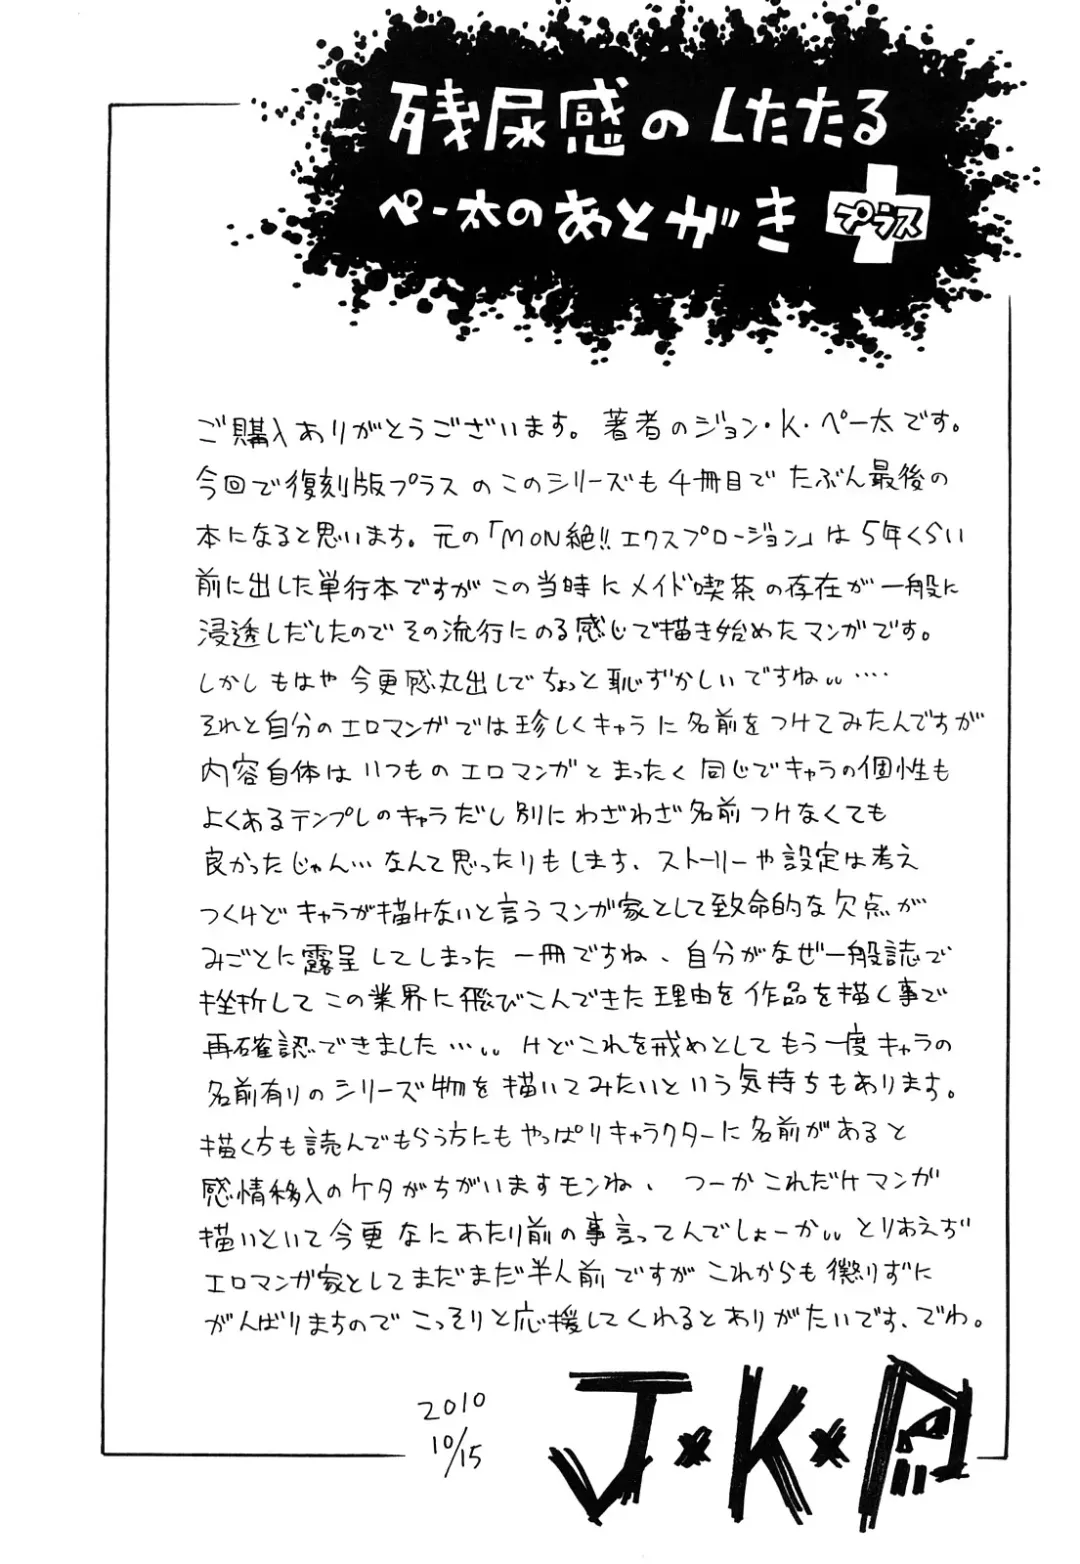 残尿感のしたたる
ペー太のあとがき プラス
ご購入ありがとうございます。著者のジョン・K・ペー太です。
今回で復刻版プラスのこのシリーズも4冊目でたぶん最後の
本になると思います。元の「MON絶!!エクスプロージョン」は5年くらい
前に出した単行本ですがこの当時にメイド喫茶の存在が一般に
浸透しだしたのでその流行にのる感じで描き始めたマンガです。
しかしもはや今更感丸出しでちょっと恥ずかしいですね‥‥‥
それと自分のエロマンガでは珍しくキャラに名前をつけてみたんですが
内容自体はいつものエロマンガとまったく同じでキャラの個性も
よくあるテンプレのキャラだし別にわざわざ名前つけなくても
良かったじゃん…なんて思ったりもします、ストーリーや設定は考え
つくけどキャラが描けないと言うマンガ家として致命的な欠点が
みごとに露呈してしまった一冊ですね、自分がなぜ一般誌で
挫折してこの業界に飛びこんできた理由を作品を描く事で
再確認できました…‥けどこれを戒めとしてもう一度キャラの
名前有りのシリーズ物を描いてみたいという気持ちもあります。
描く方も読んでもらう方にもやっぱりキャラクターに名前があると
感情移入のケタがちがいますモンね、つーかこれだけマンガ
描いといて今更なにあたり前の事言ってんでしょーか‥とりあえず
エロマンガ家としてまだまだ半人前ですがこれからも懲りずに
がんばりますのでこっそりと応援してくれるとありがたいです、でわ。
2010
10/15
J*K*P